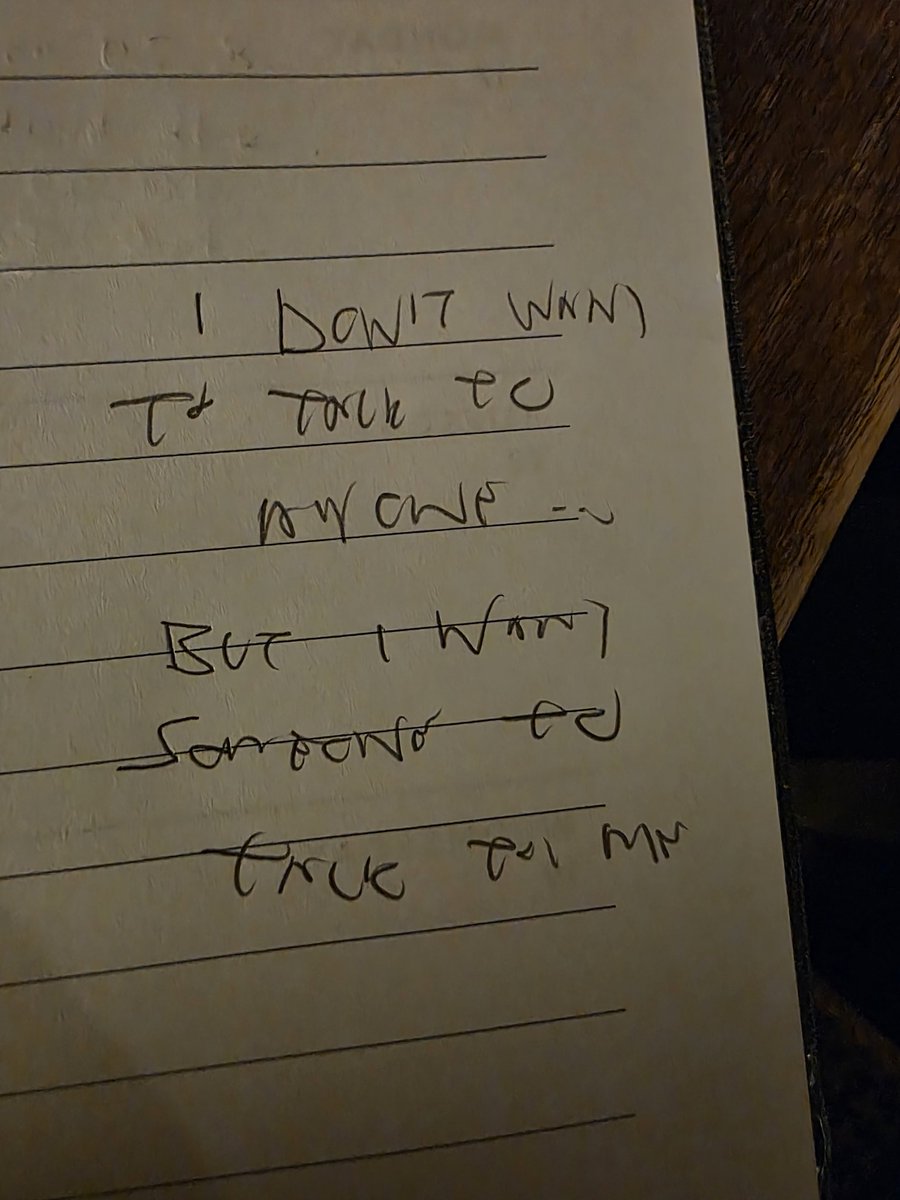 I DON'T WANT
TO TALK TO
ANYONE...
BUT I WANT
SOMEONE TO
TALK TO ME